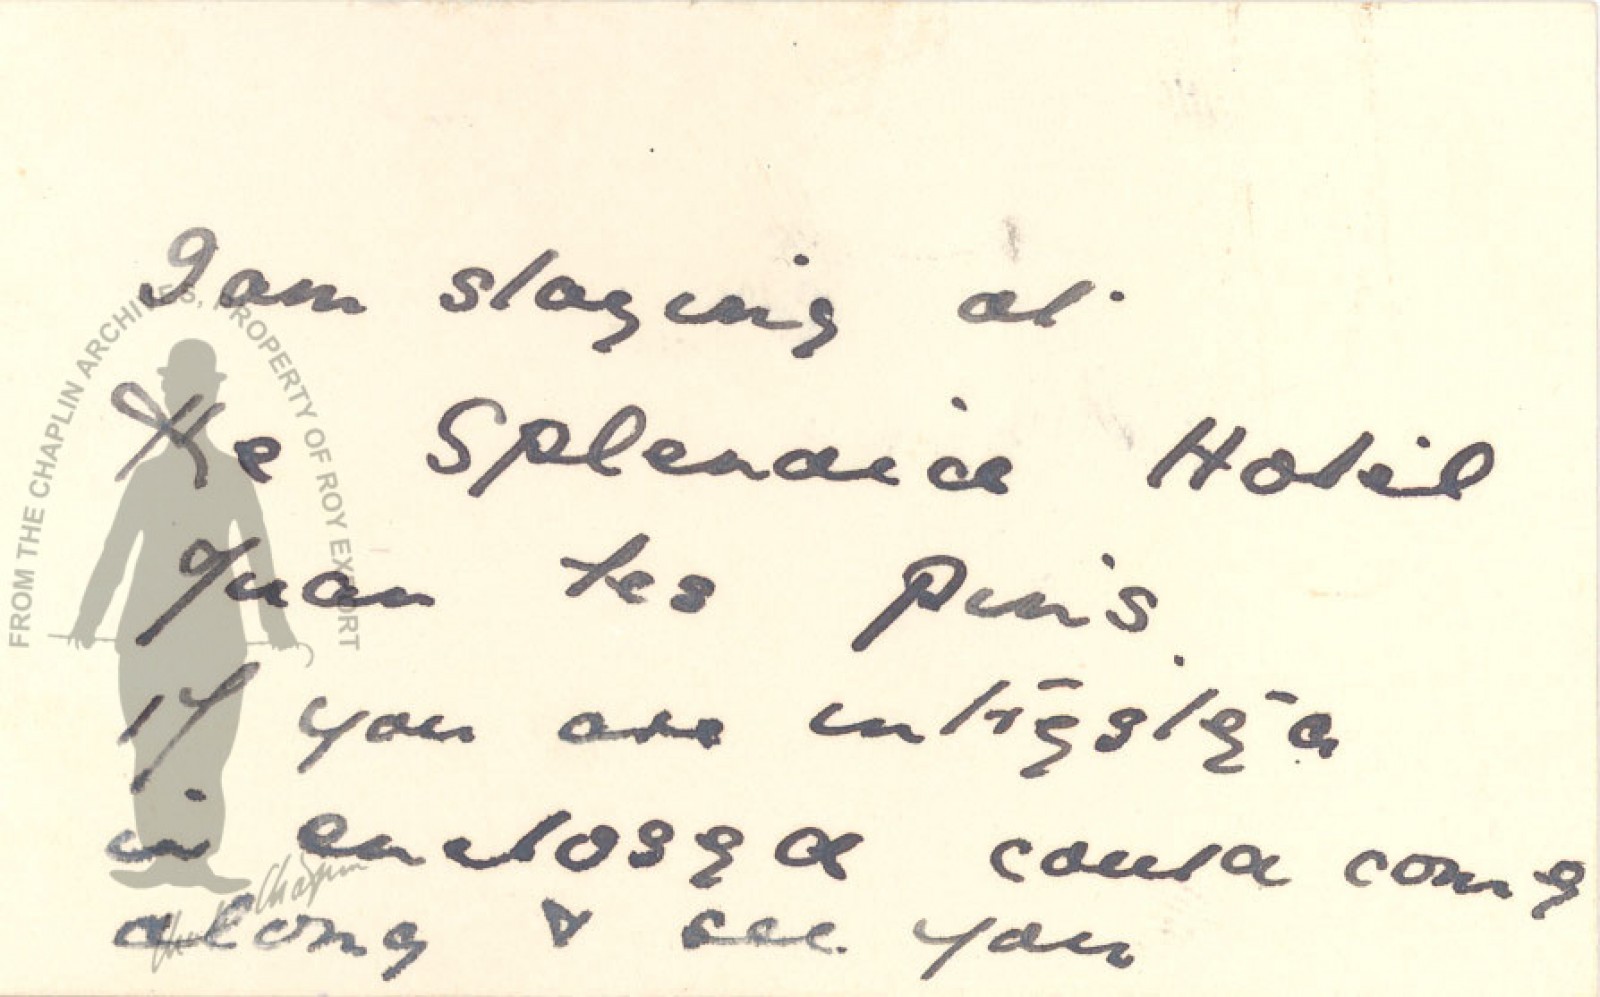 I am staying at
The Splendid Hotel
Juan les Pins.
If you are intrested
in enclosed could come
along & see you
FROM THE CHAPLIN ARCHIVES, PROPERTY OF ROY EXPORT
Charlie Chaplin